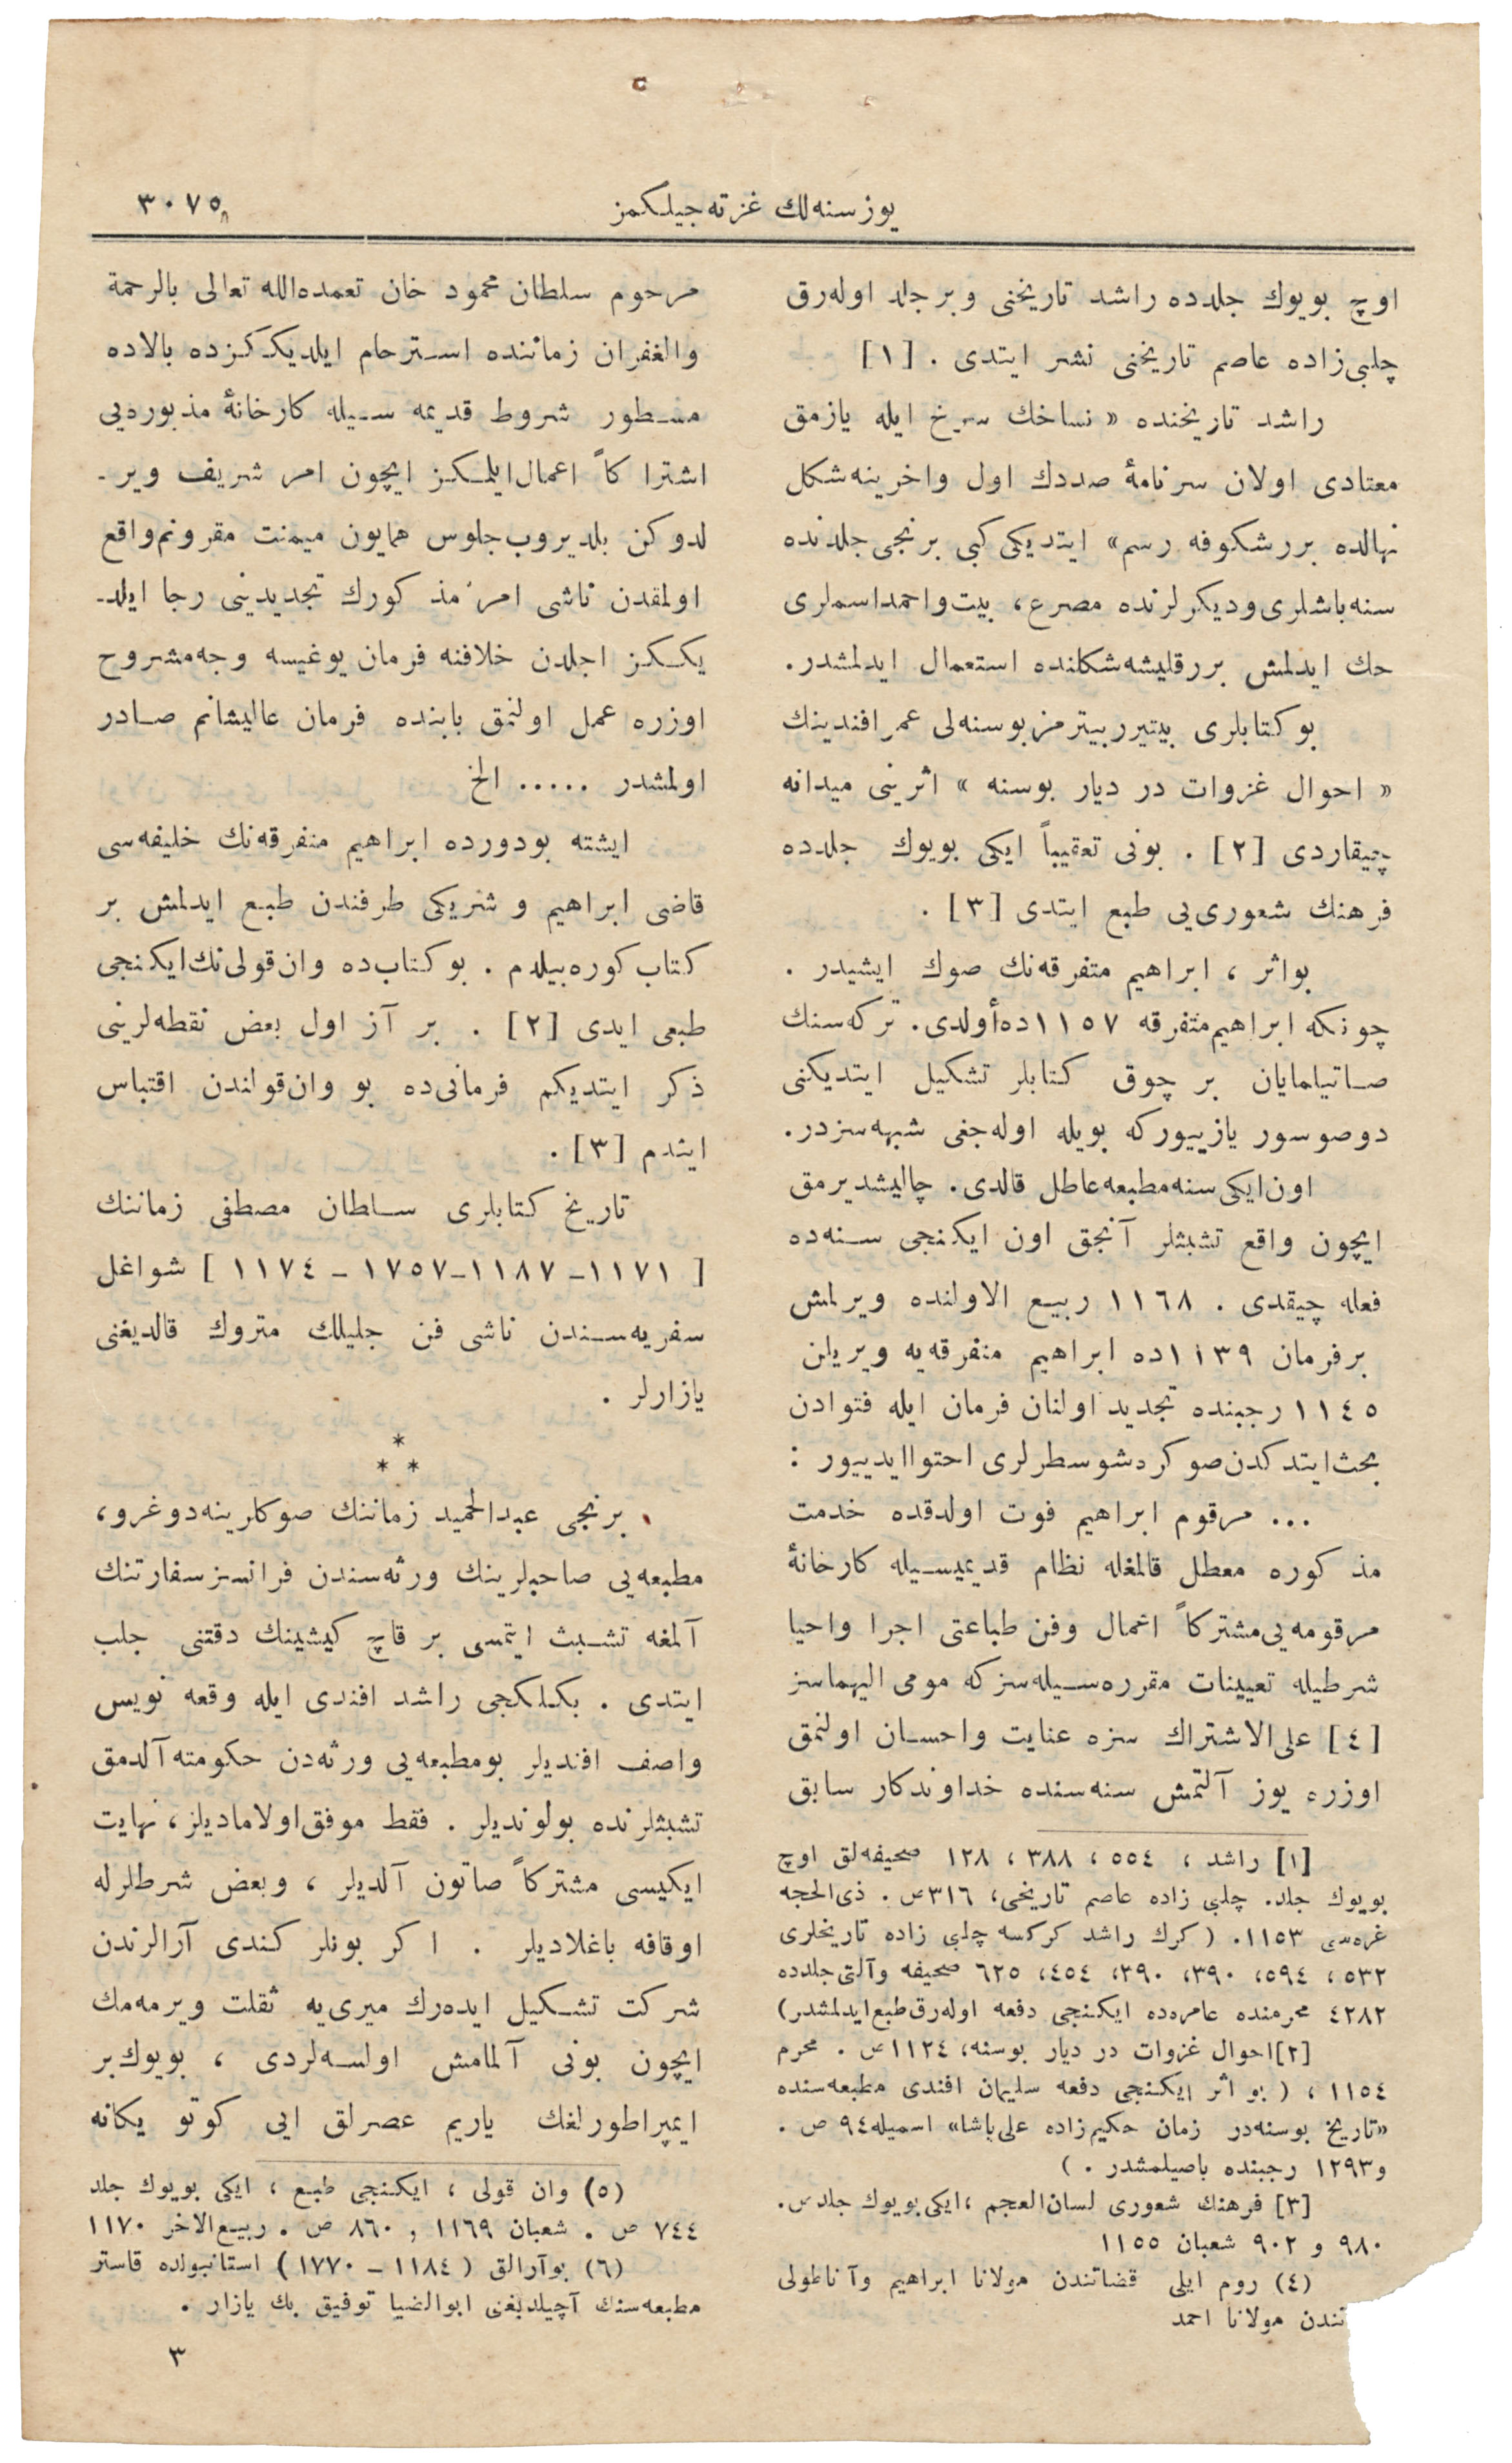 يوز سنه‌لك غزته‌جيلكمز
٣٠٧٥
اوچ بويوك جلدده راشد تاريخنى وبر جلد اوله‌رق
چلبى‌زاده عاصم تاريخنى نشر ايتدى . [١]
راشد تاريخنده « نساخك سرخ ايله يازمق
معتادى اولان سرنامهٔ صددك اول واخرينه شكل
نهالده برر شكوفه رسم» ايتديكى كبى برنجى جلدنده
سنه‌باشلرى وديكرلرنده مصرع، بيت واحمداسملرى
حك ايدلمش برر قليشه شكلنده استعمال ايدلمشدر.
بو كتابلرى بيتيرر بيترمز بوسنه‌لى عمر افندينك
« احوال غزوات در ديار بوسنه » اثرينى ميدانه
چيقاردى [٢] . بونى تعقيباً ايكى بويوك جلدده
فرهنك شعورى‌يى طبع ايتدى [٣] .
بواثر ، ابراهيم متفرقه‌نك صوك ايشيدر .
چونكه ابراهيم متفرقه ١١٥٧ ده أولدى. تركه‌سنك
صاتيلمايان بر چوق كتابلر تشكيل ايتديكنى
دوصوسور يازييوركه بويله اوله‌جغى شبهه‌سزدر.
اون‌ايكى سنه مطبعه عاطل قالدى. چاليشديرمق
ايچون واقع تشبثلر آنجق اون ايكنجى سنه‌ده
فعله چيقدى . ١١٦٨ ربيع الاولنده ويرلمش
برفرمان ١١٣٩ ده ابراهيم متفرقه‌يه ويريلن
١١٤٥ رجبنده تجديد اولنان فرمان ايله فتوادن
بحث‌ايتدكدن صوكره شو سطرلرى احتوا ايدييور :
... مرقوم ابراهيم فوت اولدقده خدمت
مذ كوره معطل قالمغله نظام قديميسيله كارخانهٔ
مرقومه‌يى مشتركاً اعمال وفن طباعتى اجرا واحيا
شرطيله تعيينات مقرره‌سيله سزكه مومى اليهماسز
[٤] على‌الاشتراك سزه عنايت واحسان اولنمق
اوزره يوز آلتمش سنه‌سنده خداوندكار سابق
[١] راشد ، ٥٥٤ ، ٣٨٨ ، ١٢٨ صحيفه‌لق اوچ
بويوك جلد. چلبى زاده عاصم تاريخى، ٣١٦ص . ذى‌الحجه
غره‌سى ١١٥٣. ( كرك راشد كركسه چلبى زاده تاريخلرى
٥٣٢ ، ٥٩٤، ٣٩٠، ٢٩٠، ٤٥٤، ٦٢٥ صحيفه وآلتى‌جلدده
٤٢٨٢ محرمنده عامره‌ده ايكنجى دفعه اوله‌رق طبع‌ايدلمشدر)
[٢] احوال غزوات در ديار بوسنه، ١١٢٤ص . محرم
١١٥٤ ، ( بو اثر ايكنجى دفعه سليمان افندى مطبعه‌سنده
«تاريخ بوسنه‌در زمان حكيم‌زاده على پاشا» اسميله ٩٤ ص .
و ١٢٩٣ رجبنده باصيلمشدر . )
[٣] فرهنك شعورى لسان‌العجم ، ايكى بويوك جلد ص.
٩٨٠ و ٩٠٢ شعبان ١١٥٥
(٤) روم ايلى قضاتندن مولانا ابراهيم وآناطولى
تندن مولانا احمد
مرحوم سلطان محمود خان تعمده‌الله تعالى بالرحمة
والغفران زماننده استرحام ايلديككزده بالاده
مسطور شروط قديمه سيله كارخانهٔ مذبوره‌يى
اشترا كاً اعمال‌ايلمكز ايچون امر شريف وير-
لدوكن بلديروب‌جلوس همايون ميمنت مقرونم‌واقع
اولمقدن ناشى امر مذ كورك تجديدينى رجا ايلد-
يككز اجلدن خلافنه فرمان يوغيسه وجه‌مشروح
اوزره عمل اولنمق بابنده فرمان عاليشانم صادر
اولمشدر ..... الخ
ايشته بودورده ابراهيم متفرقه‌نك خليفه‌سى
قاضى ابراهيم و شريكى طرفندن طبع ايدلمش بر
كتاب كوره‌بيلدم . بو كتاب‌ده وان‌قولى‌نك‌ايكنجى
طبعى ايدى [٢] . بر آز اول بعض نقطه‌لرينى
ذكر ايتديكم فرمانى‌ده بو وان‌قولندن اقتباس
ايتدم [٣] .
تاريخ كتابلرى سلطان مصطفى زماننك
[ ١١٧١ - ١١٨٧-١٧٥٧ - ١١٧٤ ] شواغل
سفريه‌سندن ناشى فن جليلك متروك قالديغنى
يازارلر .
*
* *
برنجى عبدالحميد زماننك صوكلرينه‌دوغرو،
مطبعه‌يى صاحبلرينك ورثه‌سندن فرانسز سفارتنك
آلمغه تشبث ايتمسى بر قاچ كيشينك دقتنى جلب
ايتدى . بكلكجى راشد افندى ايله وقعه نويس
واصف افنديلر بومطبعه‌يى ورثه‌دن حكومته‌آلدمق
تشبثلرنده بولونديلر . فقط موفق‌اولاماديلر، نهايت
ايكيسى مشتركاً صاتون آلديلر ، وبعض شرطلرله
اوقافه باغلاديلر . ا كر بونلر كندى آرالرندن
شركت تشكيل ايده‌رك ميرى‌يه ثقلت ويرمه‌مك
ايچون بونى آلمامش اولسه‌لردى ، بويوك‌بر
ايمپراطورلغك ياريم عصرلق ايى كوتو يكانه
(٥) وان قولى ، ايكنجى طبع ، ايكى بويوك جلد
٧٤٤ ص . شعبان ١١٦٩ , ٨٦٠ ص . ربيع‌الاخر ١١٧٠
(٦) بوآرالق ( ١١٨٤ - ١٧٧٠ ) استانبولده قاستر
مطبعه‌سنك آچيلديغنى ابوالضيا توفيق بك يازار .
٣